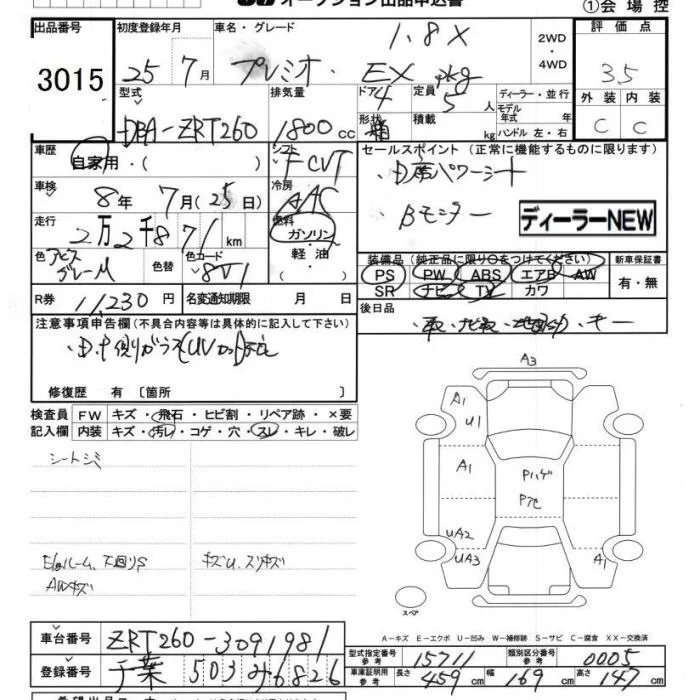 オークション出品申込書
①会場控
出品番号 初度登録年月 車名・グレード 評価点
3015 25年7月 プレミオ 1.8X EX pkg 2WD・4WD 3.5
型式 排気量 ドア 定員 ディーラー・並行 外装 内装
DBA-ZRT260 1800cc 4 5人 モデル年式 年 C C
形状 箱 積載 kg ハンドル 左・右
車歴 シフト セールスポイント (正常に機能するものに限ります)
自家用・( ) FCVT ・D席パワーシート
車検 冷房
8年7月(25日) AAC ・Bモニター ディーラーNEW
走行 燃料
2万2千871km ガソリン・軽油・( )
装備品 (純正品に限り○をつけてください) 新車保証書
色 グレーM 色替 色カード 8V1
PS PW ABS エアB AW 有・無
SR ナビ TV カワ
R券 11,230円 名変通知期限 月 日 後日品
注意事項申告欄(不具合内容等は具体的に記入して下さい)
修復歴 有 〔箇所 〕
検査員 FW キズ・飛石・ヒビ割・リペア跡・×要
記入欄 内装 キズ・汚レ・コゲ・穴・スレ・キレ・破レ
シートシミ
下廻りS キズU、スリキズ
AWキズ
A3
A1
U1
A1
Pハゲ
UA2
UA3
A1
スペア
A-キズ E-エクボ U-凹み W-補修跡 S-サビ C-腐食 XX-交換済
車台番号 ZRT260-3091981
登録番号 千葉 503 み6826
型式指定番号 参考 15711 類別区分番号 参考 0005
車両証明用 参考 長さ 459cm 幅 169cm 高さ 147cm